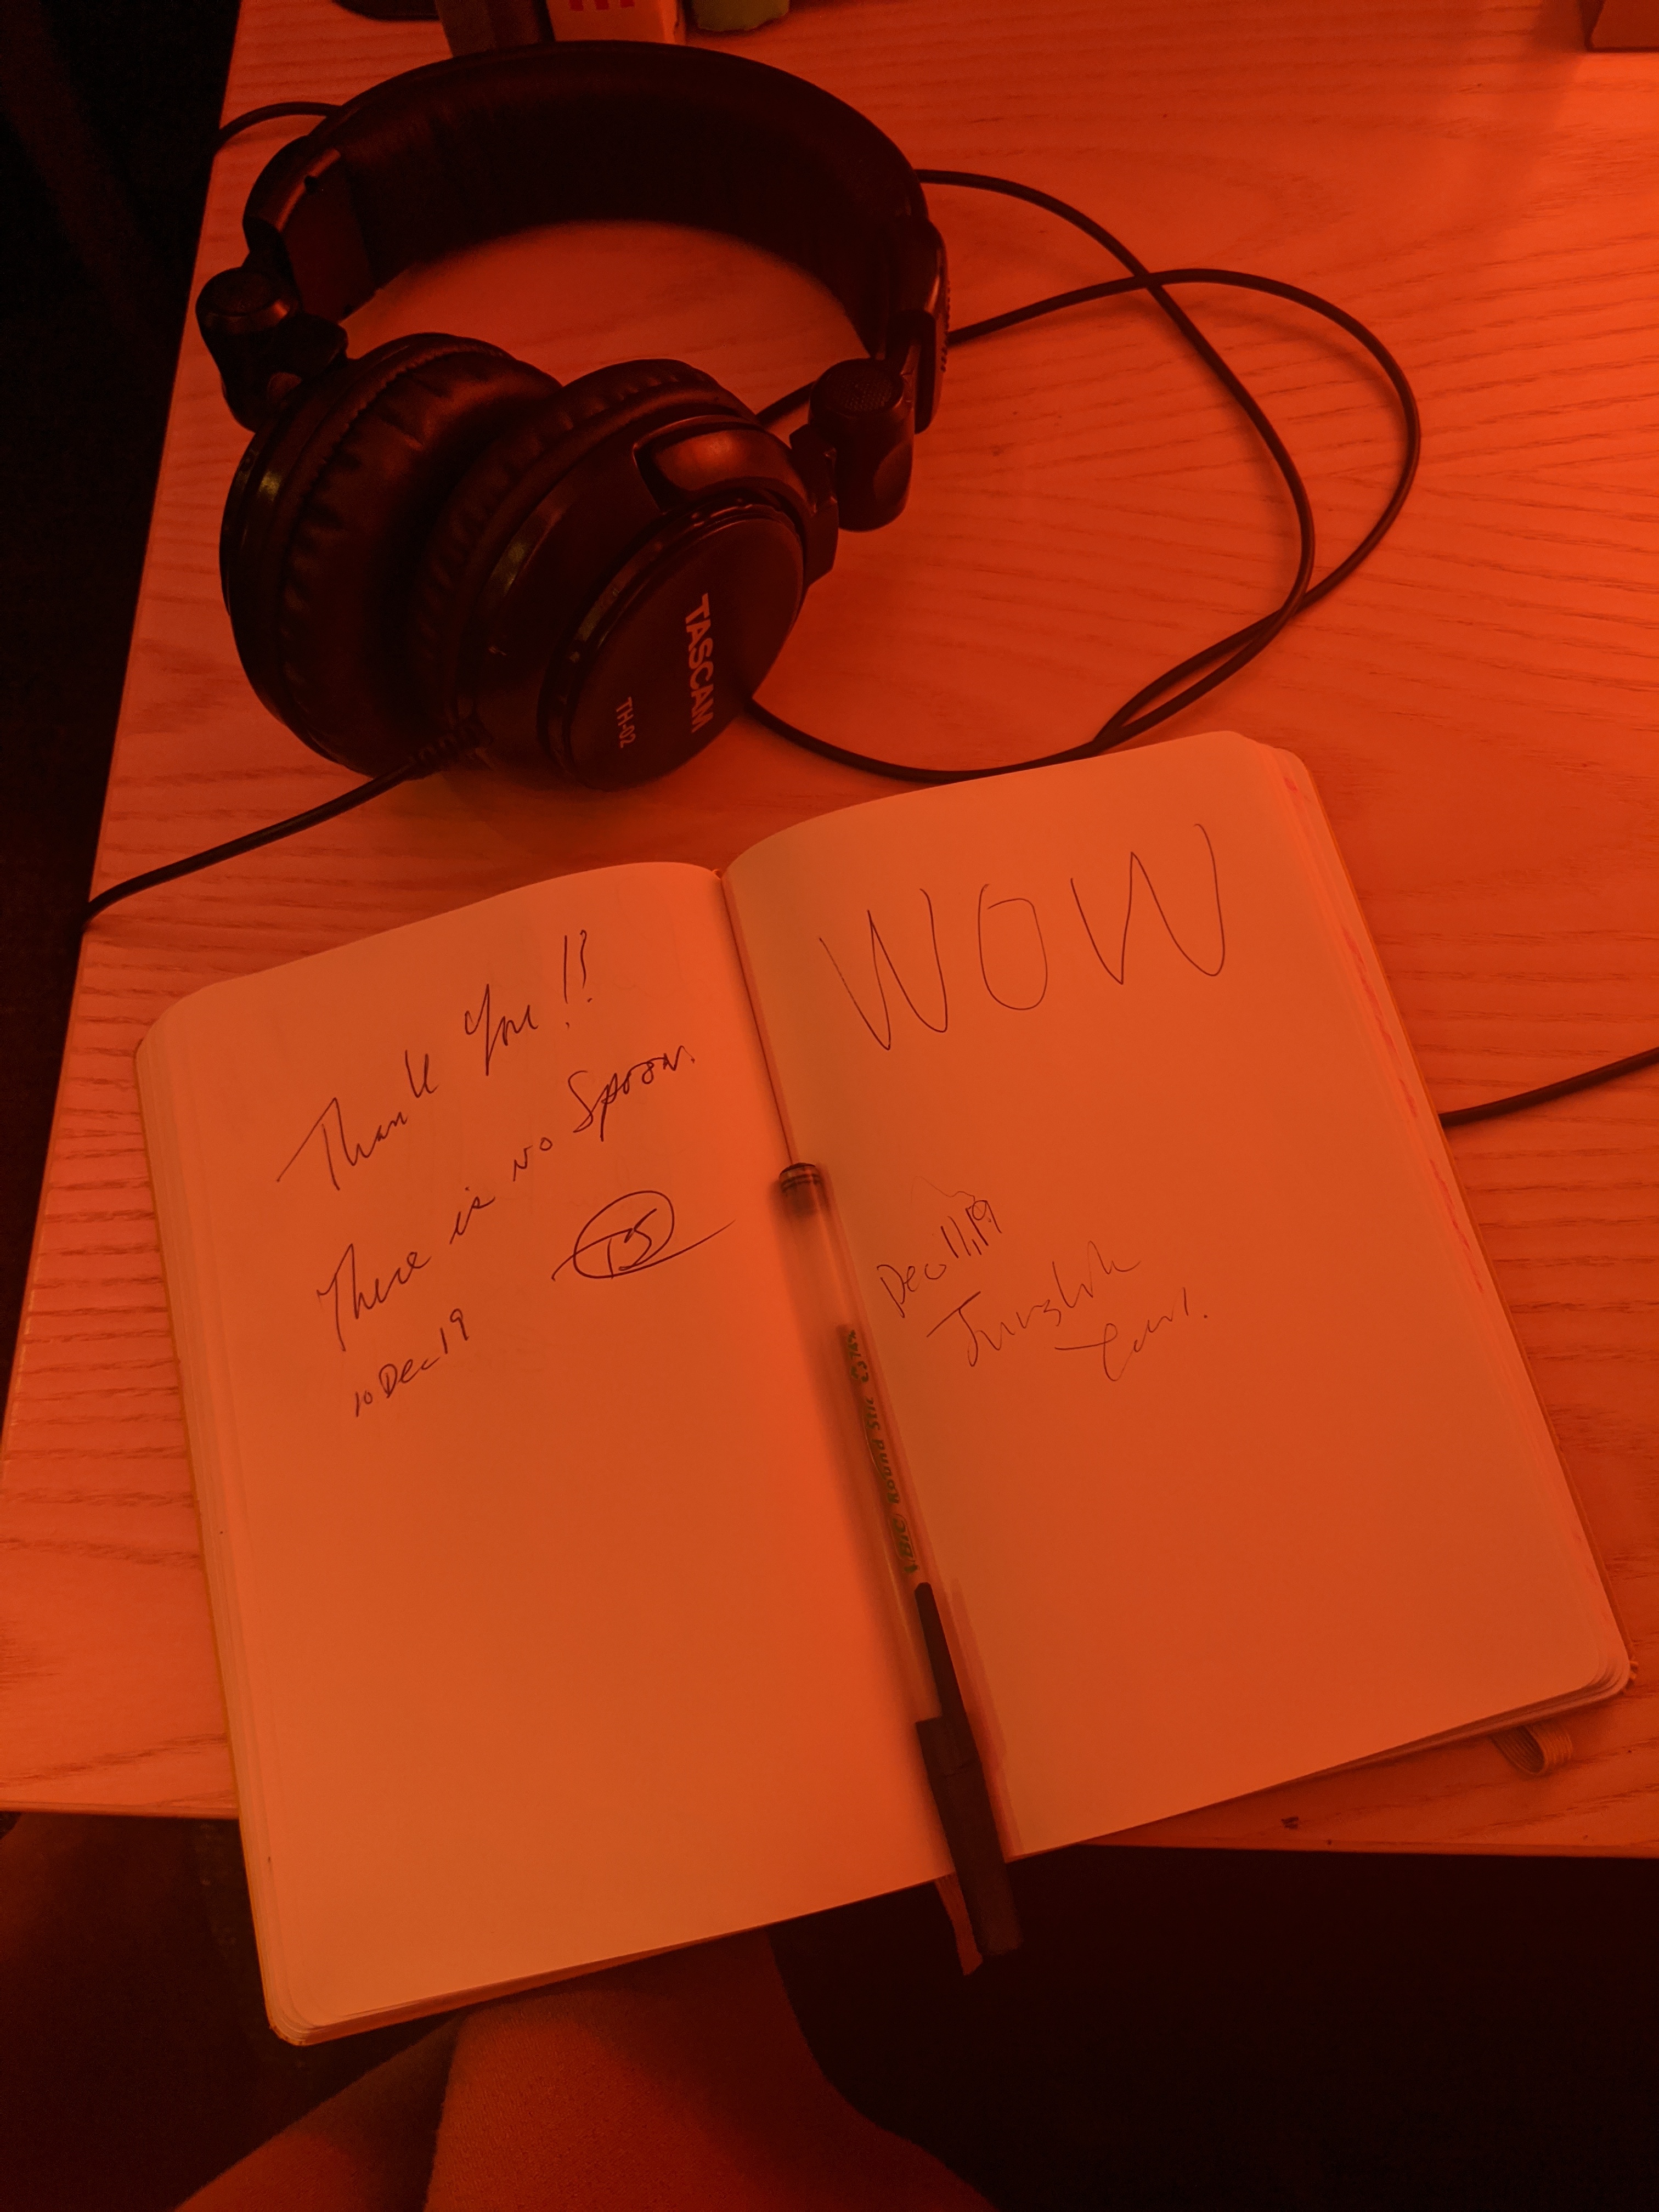 TASCAM
TH-02
Thank You!!
There is no Spoon.
TS
10 Dec 19
WOW
Dec 11, 19
BIC Round Stic